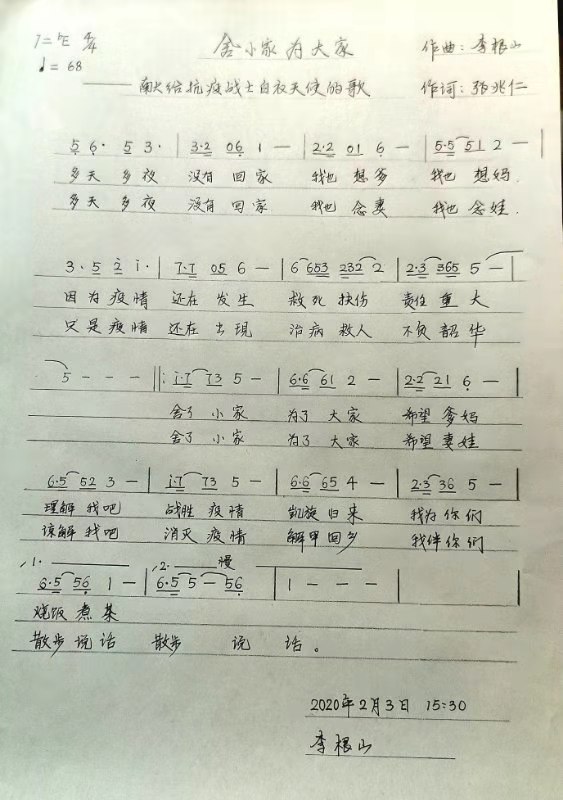 1=♭E 4/4 舍小家为大家 作曲:李根山
♩=68 ——献给抗疫战士白衣天使的歌 作词:张兆仁
5 6· 5 3· | 3·2 06 1 — | 2·2 01 6 — | 5·5 51 2 — |
多天 多夜 没有 回家 我也 想爹 我也 想妈.
多天 多夜 没有 回家 我也 念妻 我也 念娃.
3·5 2 1· | 7·7 05 6 — | 6 653 232 2 | 2·3 365 5 — |
因为 疫情 还在 发生 救死 扶伤 责任 重大
只是 疫情 还在 出现 治病 救人 不负 韶华
5 — — — ‖: 1·7 73 5 — | 6·6 61 2 — | 2·2 21 6 — |
舍了 小家 为了 大家 希望 爹妈
舍了 小家 为了 大家 希望 妻娃
6·5 52 3 — | 1·7 73 5 — | 6·6 65 4 — | 2·3 36 5 — |
理解 我吧 战胜 疫情 凯旋 归来 我为 你们
谅解 我吧 消灭 疫情 解甲 回乡 我伴 你们
1. 2. 慢
6·5 56 1 — | 6·5 5 — 56 | 1 — — — |
烧饭 煮菜
散步 说话 散步 说 话。
2020年2月3日 15:30
李根山